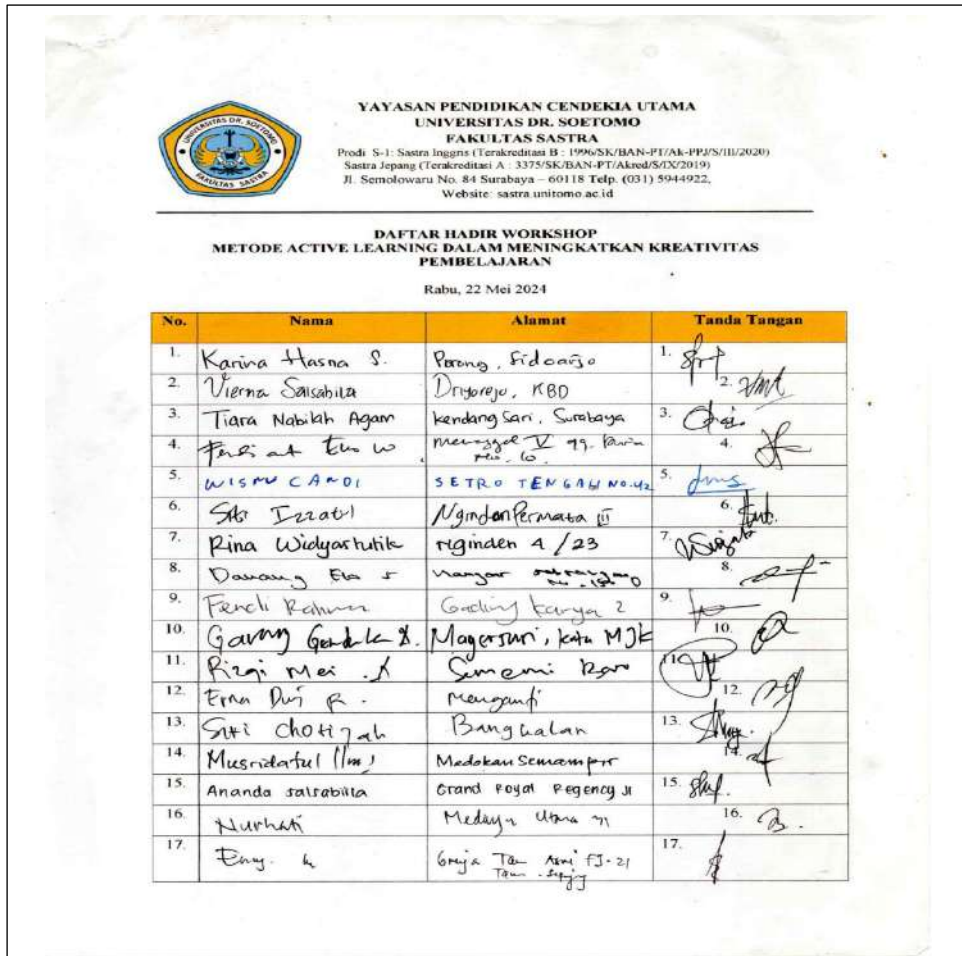 UNIVERSITAS DR. SOETOMO
FAKULTAS SASTRA
YAYASAN PENDIDIKAN CENDEKIA UTAMA
UNIVERSITAS DR. SOETOMO
FAKULTAS SASTRA
Prodi S-1: Sastra Inggris (Terakreditasi B : 1996/SK/BAN-PT/Ak-PPJ/S/III/2020)
Sastra Jepang (Terakreditasi A : 3375/SK/BAN-PT/Akred/S/IX/2019)
Jl. Semolowaru No. 84 Surabaya – 60118 Telp. (031) 5944922,
Website: sastra.unitomo.ac.id
DAFTAR HADIR WORKSHOP
METODE ACTIVE LEARNING DALAM MENINGKATKAN KREATIVITAS
PEMBELAJARAN
Rabu, 22 Mei 2024
No. Nama Alamat Tanda Tangan
1. Karina Hasna S. Porong, Sidoarjo 1.
2. Vierna Salsabila Driyorejo, KBD 2.
3. Tiara Nabilah Agam Kendang Sari, Surabaya 3.
4. 4.
5. WISNU CANDI SETRO TENGAH NO.42 5.
6. Siti Izzatul Nginden Permata III 6.
7. Rina Widyastutik nginden 4/23 7.
8. Danang Eko S 8.
9. Fendi Rahman Gading Karya 2 9.
10. Magersari, Kota MJK 10.
11. Rizqi Mei .K Sememi 11.
12. Erna Dwi R. Menganti 12.
13. Siti Chotijah Bangkalan 13.
14. Musridatul Ilmi Medokan Semampir 14.
15. Ananda salsabilla Grand Royal Regency 15.
16. Nurhati Utara 16.
17. Eny. 17.